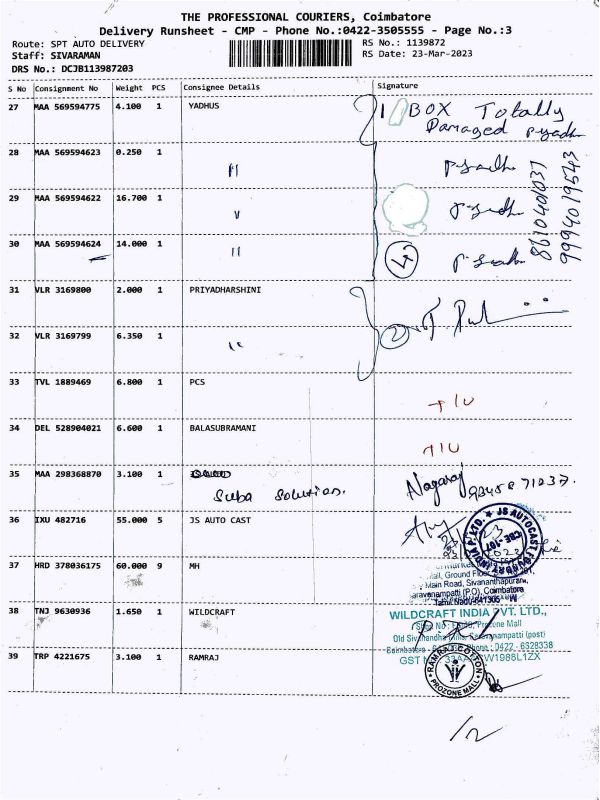 THE PROFESSIONAL COURIERS, Coimbatore
Delivery Runsheet - CMP - Phone No.:0422-3505555 - Page No.:3
Route: SPT AUTO DELIVERY RS No.: 1139872
Staff: SIVARAMAN RS Date: 23-Mar-2023
DRS No.: DCJB113987203
S No Consignment No Weight PCS Consignee Details Signature
27 MAA 569594775 4.100 1 YADHUS 1 BOX Totally
Damaged
28 MAA 569594623 0.250 1 "
29 MAA 569594622 16.700 1 "
30 MAA 569594624 14.000 1 " 4
8610401037
9994019543
31 VLR 3169800 2.000 1 PRIYADHARSHINI
32 VLR 3169799 6.350 1 " 2
33 TVL 1889469 6.800 1 PCS
34 DEL 528904021 6.600 1 BALASUBRAMANI
35 MAA 298368870 3.100 1 Nagaraj
Suba Solution.
36 IXU 482716 55.000 5 JS AUTO CAST
JS AUTOCAST FOUNDRY INDIA P. LTD. CBE-107
37 HRD 378036175 60.000 9 MH
Main Road, Sivananthapuram,
(P.O), Coimbatore
38 TNJ 9630936 1.650 1 WILDCRAFT
WILDCRAFT INDIA PVT. LTD.,
Prozone Mall
(post)
Phone : 0422 - 6328338
39 TRP 4221675 3.100 1 RAMRAJ
RAMRAJ COTTON PROZONE MALL